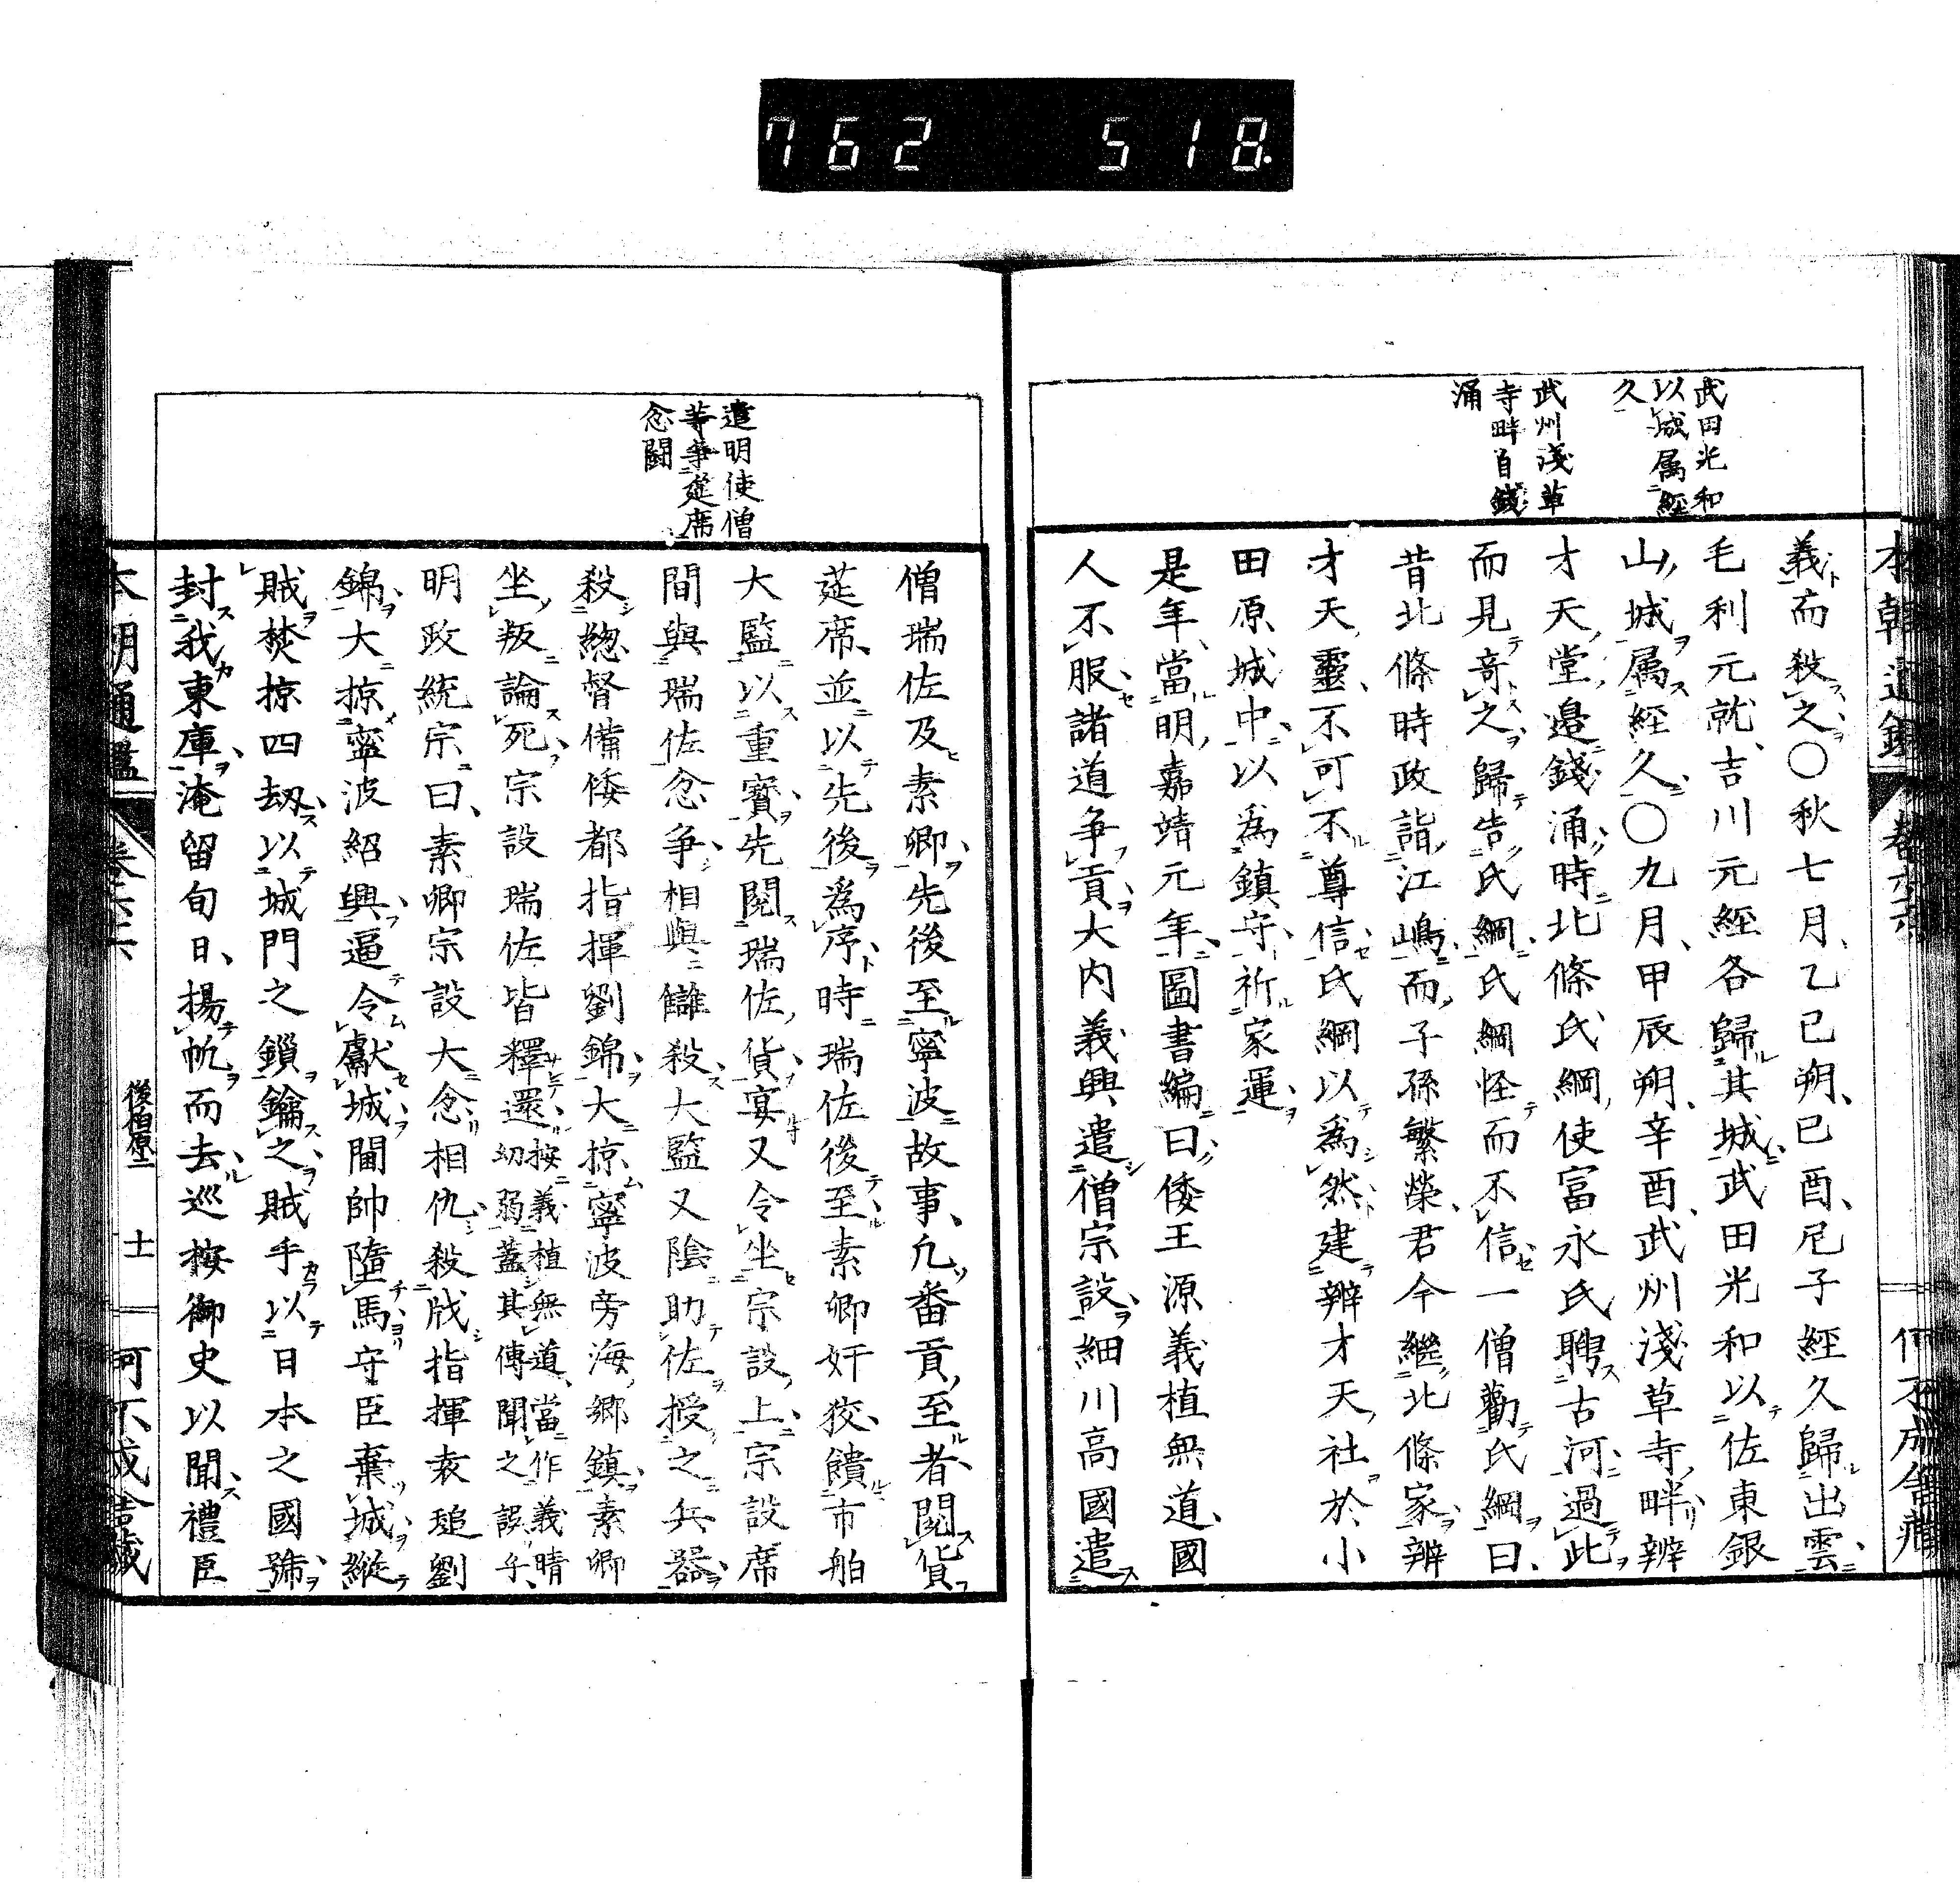 762 518.
武田光和
以城属経
久
武州淺草
寺畔自錢
涌
義而殺之〇秋七月乙巳朔己酉尼子經久歸出雲
毛利元就吉川元經各歸其城武田光和以佐東銀
山城属經久〇九月甲辰朔辛酉武州淺草寺畔辨
才天堂邉錢涌時北條氏綱使富永氏聘古河過此
而見竒之歸告氏綱氏綱怪而不信一僧勸氏綱曰
昔北條時政詣江嶋而子孫繁榮君今繼北條家辨
才天靈不可不尊信氏綱以爲然建辨才天社於小
田原城中以為鎮守祈家運
是年當明嘉靖元年圖書編曰倭王源義植無道國
人不服諸道争貢大内義興遣僧宗設細川高國遣
遣明使僧
等爭筵席
念鬪
僧瑞佐及素卿先後至寧波故事凢番貢至者閲貨
莚席並以先後為序時瑞佐後至素卿奸狡饋市舶
大監以重寳先閲瑞佐貨宴又令坐宗設上宗設席
間與瑞佐忿争相與讎殺大監又隂助佐授之兵器
殺總督備倭都指揮劉錦大掠寧波旁海郷鎮素卿
坐叛論死宗設瑞佐皆釋還按義植無道當作義晴
幼弱蓋其傳聞之誤乎
明政統宗曰素卿宗設大念相仇殺戕指揮袁璡劉
錦大掠寧波紹興逼令獻城閫帥墮馬守臣棄城縱
賊焚掠四刼以城門之鎖鑰之賊手以日本之國號
封我東庫淹留旬日揚帆而去巡按御史以聞禮臣
本朝通鑑
後柏原二
十一